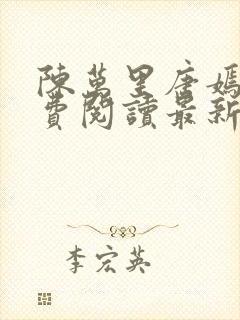 陳萬里唐嫣
費閱讀最新
李宏英